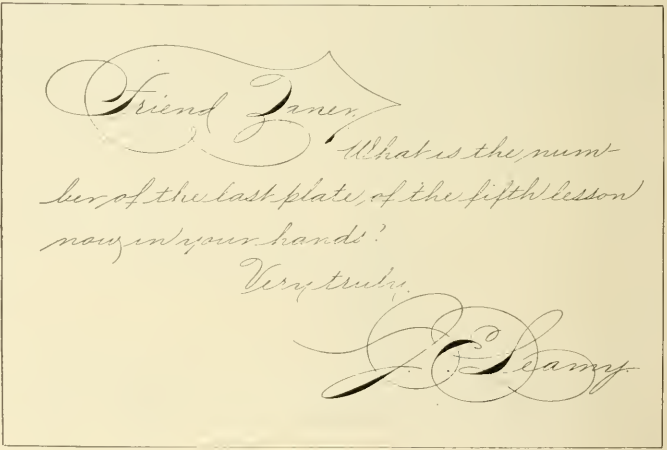 Friend Zaner,
What is the num-
ber of the last plate, of the fifth lesson
now in your hands?
Very truly,
J. C. Seamy.